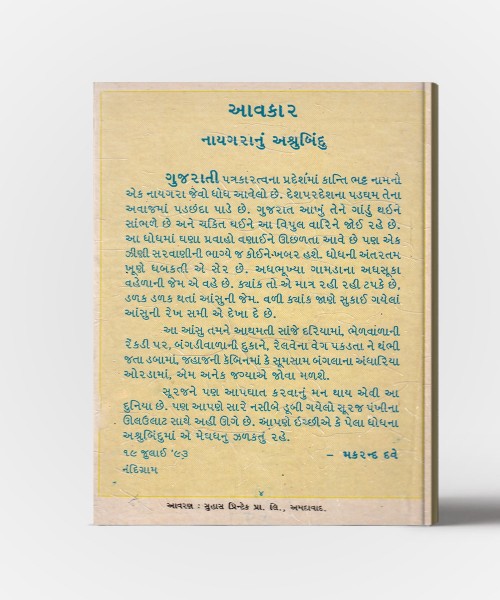 આવકાર
નાયગરાનું અશ્રુબિંદુ
ગુજરાતી પત્રકારત્વના પ્રદેશમાં કાન્તિ ભટ્ટ નામનો
એક નાયગરા જેવો ધોધ આવેલો છે. દેશપરદેશના પડઘમ તેના
અવાજમાં પડછંદા પાડે છે. ગુજરાત આખું તેને ગાંડું થઈને
સાંભળે છે અને ચકિત થઈને આ વિપુલ વારિને જોઈ રહે છે.
આ ધોધમાં ઘણા પ્રવાહો વણાઈને ઊછળતા આવે છે પણ એક
ઝીણી સરવાણીની ભાગ્યે જ કોઈને ખબર હશે. ધોધની અંતરતમ
ખૂણે ધબકતી એ સેર છે. અધભૂખ્યા ગામડાના અધસૂકા
વહેળાની જેમ એ વહે છે. ક્યાંક તો એ માત્ર રહી રહી ટપકે છે,
ડળક ડળક થતાં આંસુની જેમ. વળી ક્યાંક જાણે સુકાઈ ગયેલાં
આંસુની રેખ સમી એ દેખા દે છે.
આ આંસુ તમને આથમતી સાંજે દરિયામાં, ભેળવાળાની
રેંકડી પર, બંગડીવાળાની દુકાને, રેલવેના વેગ પકડતા ને થંભી
જતા ડબામાં, જહાજની કૅબિનમાં કે સૂમસામ બંગલાના અંધારિયા
ઓરડામાં, એમ અનેક જગ્યાએ જોવા મળશે.
સૂરજને પણ આપઘાત કરવાનું મન થાય એવી આ
દુનિયા છે. પણ આપણે સારે નસીબે ડૂબી ગયેલો સૂરજ પંખીના
ઊલઉલાટ સાથે અહીં ઊગે છે. આપણે ઇચ્છીએ કે પેલા ધોધના
અશ્રુબિંદુમાં એ મેઘધનુ ઝળકતું રહે.
૧૯ જુલાઈ '૯૩ – મકરન્દ દવે
નંદિગ્રામ
૪
આવરણ : સુહાસ પ્રિન્ટેક પ્રા. લિ., અમદાવાદ.